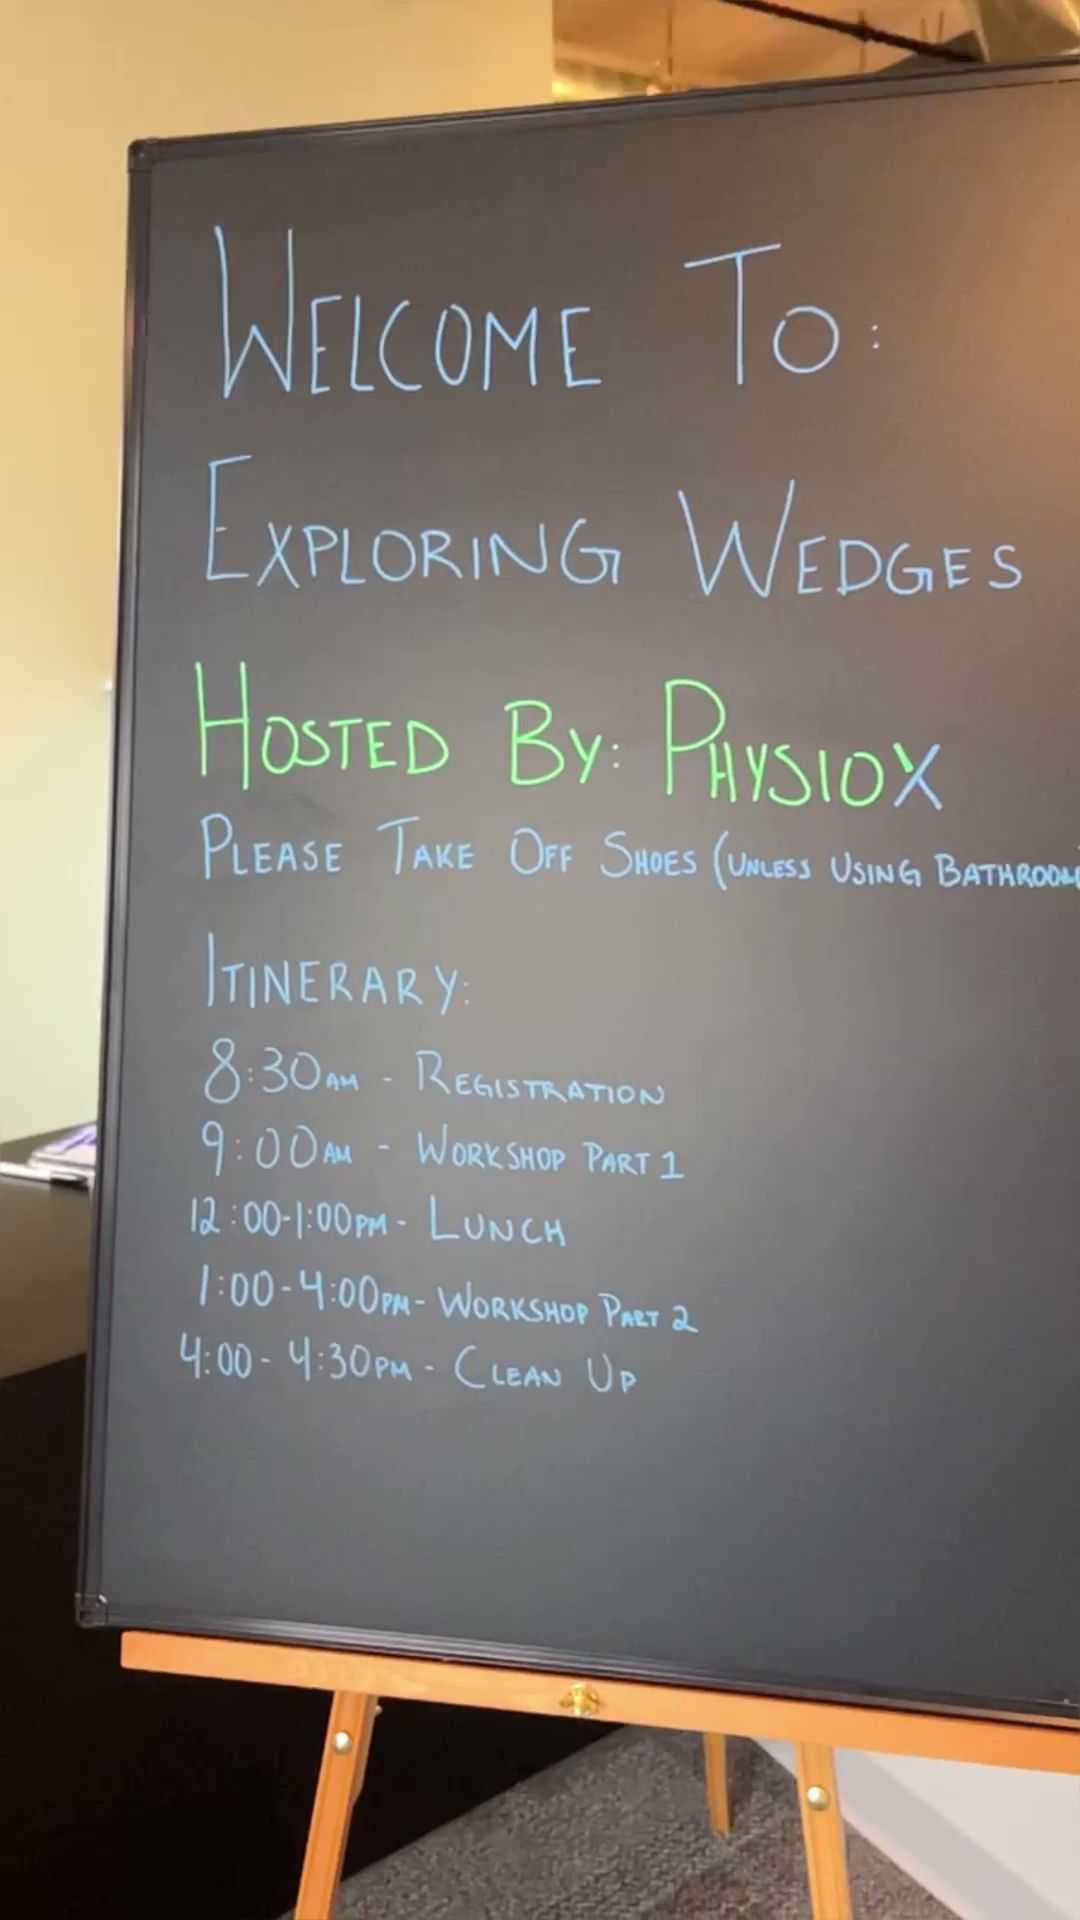 WELCOME TO:
EXPLORING WEDGES
HOSTED BY: PHYSIOX
PLEASE TAKE OFF SHOES (UNLESS USING BATHROOM
ITINERARY:
8:30AM - REGISTRATION
9:00AM - WORKSHOP PART 1
12:00-1:00PM - LUNCH
1:00-4:00PM - WORKSHOP PART 2
4:00-4:30PM - CLEAN UP